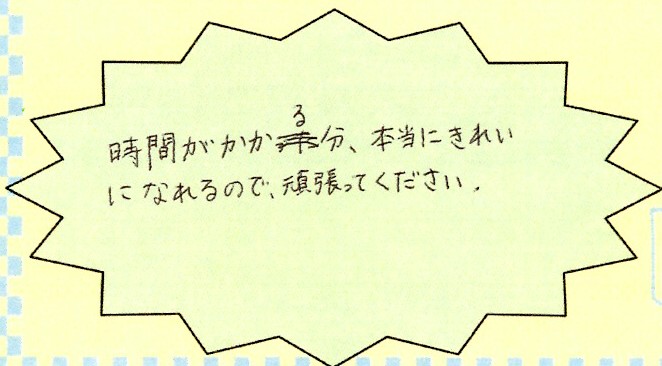 時間がかかる分、本当にきれい
になれるので、頑張ってください。